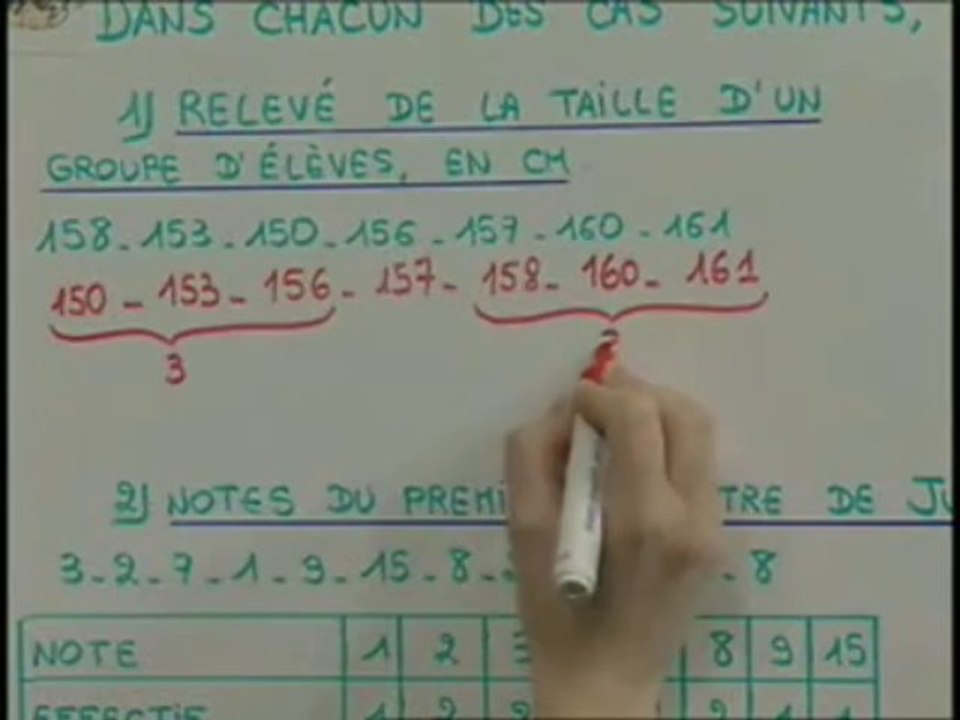 DANS CHACUN DES CAS SUIVANTS,
1) RELEVÉ DE LA TAILLE D'UN
GROUPE D'ÉLÈVES, EN CM
158-153-150-156-157-160-161
150-153-156-157-158-160-161
3
2) NOTES DU DE
3-2-7-1-9-15-8- -8
NOTE 1 2 3 8 9 15
EFFECTIF 1 2 2 2 1 1